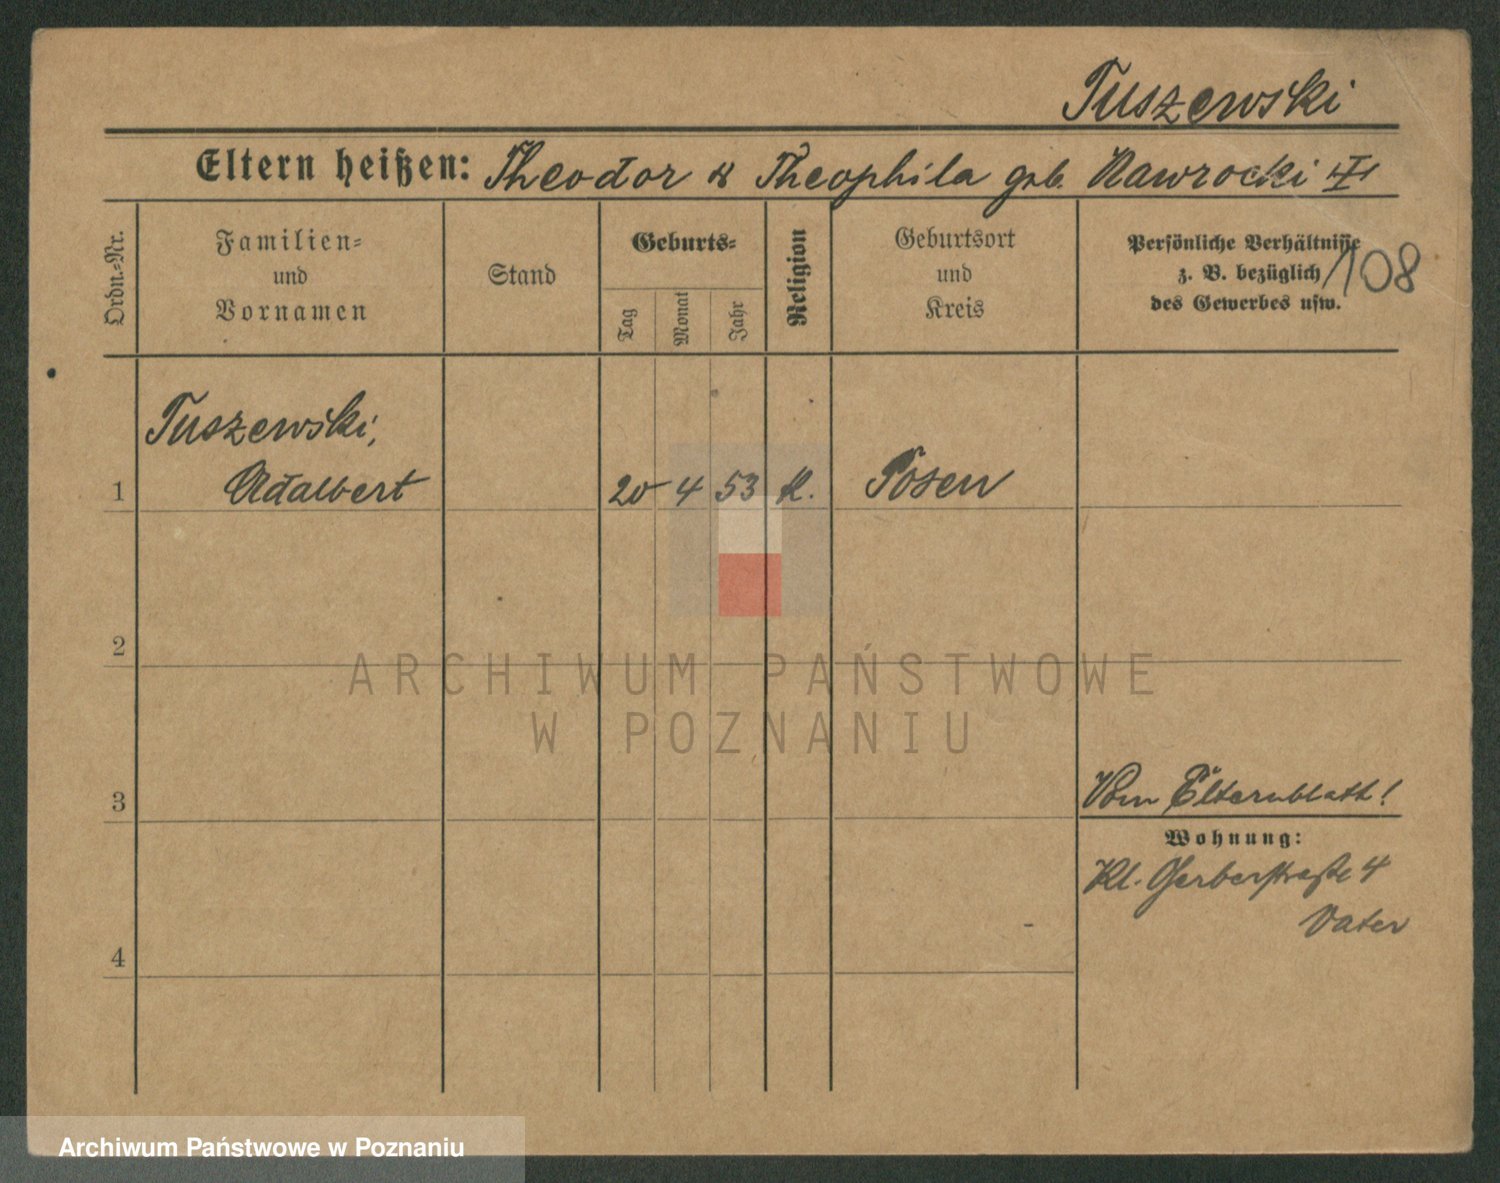 Tuszewski
Eltern heißen: Theodor & Theophila geb. Nawrocki
Ordn.-Nr.
Familien-
und
Vornamen
Stand
Geburts-
Tag
Monat
Jahr
Religion
Geburtsort
und
Kreis
Persönliche Verhältnisse
z. B. bezüglich
des Gewerbes usw.
108
Tuszewski,
1 Adalbert 20 4 53 k. Posen
2
ARCHIWUM PAŃSTWOWE
W POZNANIU
3 Vom Elternblatt!
Wohnung:
Kl. Gerberstraße 4
Vater
4
Archiwum Państwowe w Poznaniu